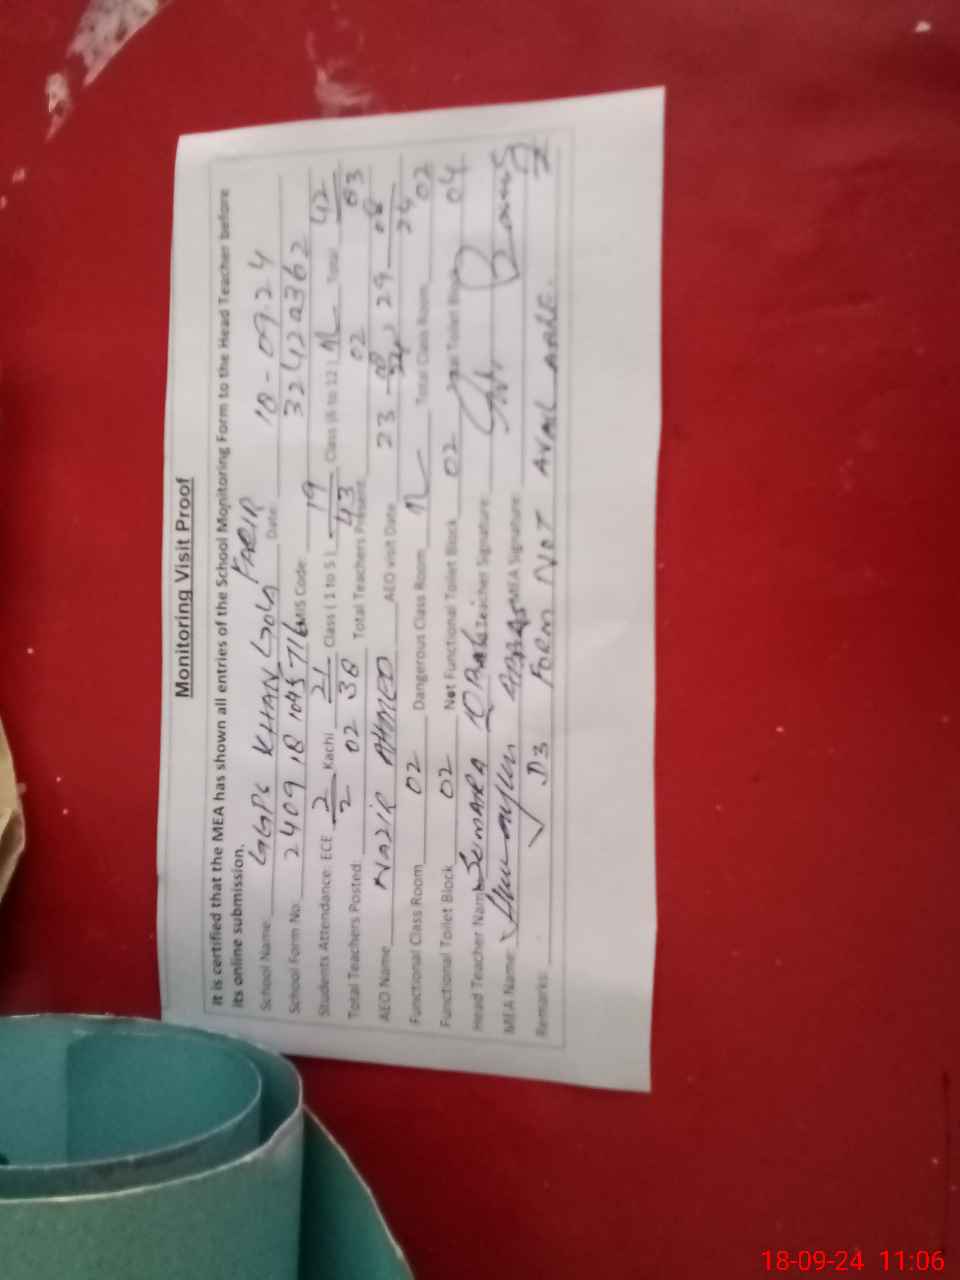 Monitoring Visit Proof
It is certified that the MEA has shown all entries of the School Monitoring Form to the Head Teacher before
its online submission.
School Name: GGPS KHAN Date: 18-09-24
School Form No. 2409 18 EMIS Code: 32420362
Students Attendance: ECE 2/2 Kachi 21/38 Class (1 to 5) 19/43 Class (6 to 12) Total 42
Total Teachers Posted: 02 Total Teachers Present 02 03
AEO Name NAZIR AHMED AEO visit Date 23-08 29-08
24 24
Functional Class Room 02 Dangerous Class Room Total Class Room 02
Functional Toilet Block 02 Not Functional Toilet Block 02 Total Toilet Block 04
Head Teacher Name SUMAIRA Teacher Signature
MEA Name: MEA Signature
Remarks: D3 FORM NOT AVAILABLE.
18-09-24 11:06